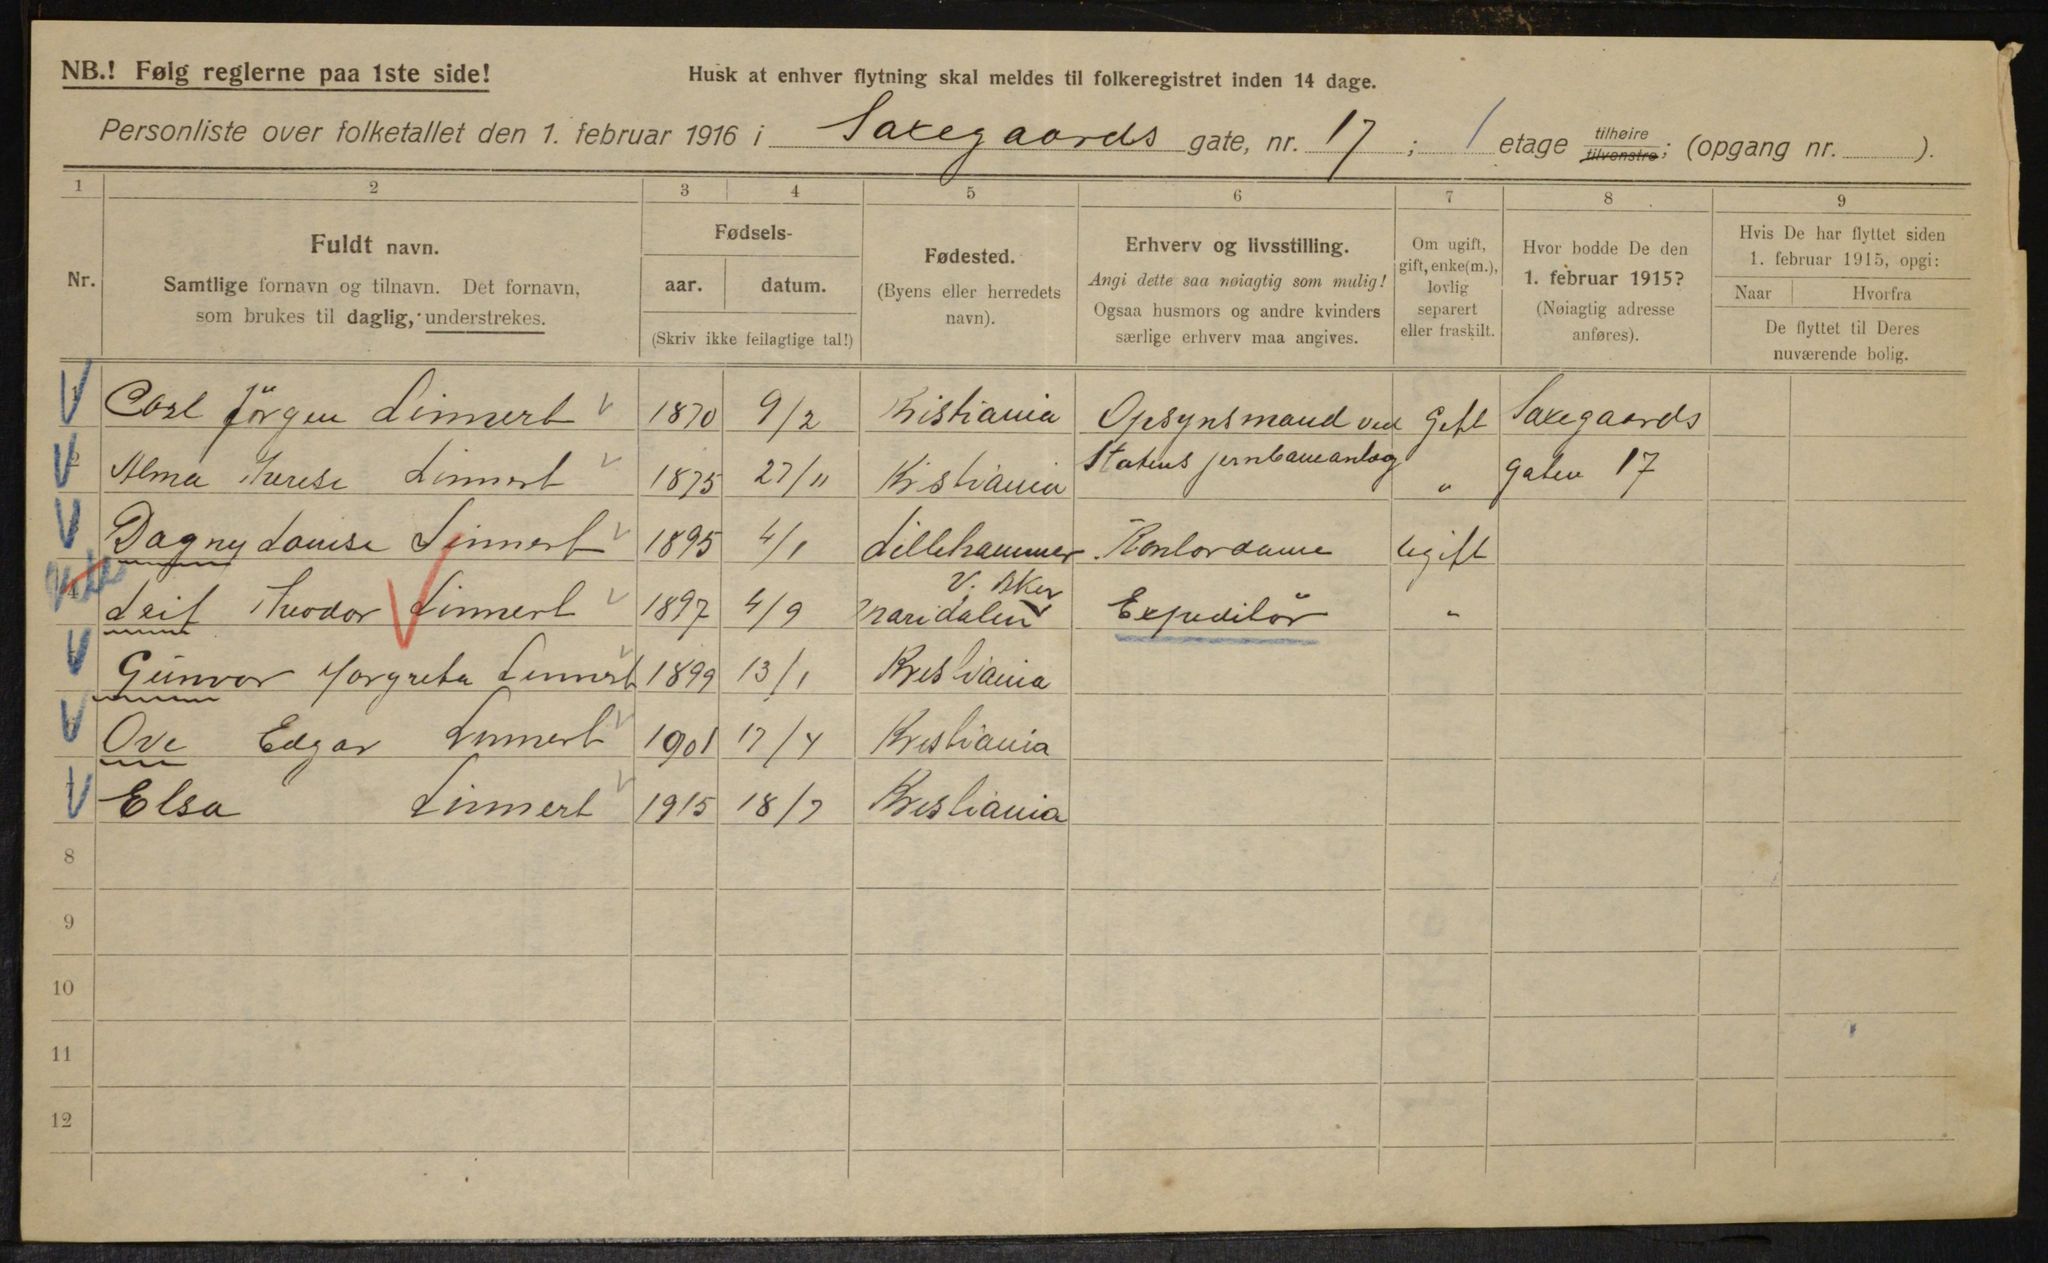 NB.! Følg reglerne paa 1ste side!
Husk at enhver flytning skal meldes til folkeregistret inden 14 dage.
Personliste over folketallet den 1. februar 1916 i Saxegaards gate, nr. 17 ; 1 etage tilhøire tilvenstre; (opgang nr. ).
1 2 3 4 5 6 7 8 9
Nr.
Fuldt navn.
Samtlige fornavn og tilnavn. Det fornavn,
som brukes til daglig, understrekes.
Fødsels-
aar. datum.
(Skriv ikke feilagtige tal!)
Fødested.
(Byens eller herredets
navn).
Erhverv og livsstilling.
Angi dette saa nøiagtig som mulig!
Ogsaa husmors og andre kvinders
særlige erhverv maa angives.
Om ugift,
gift, enke(m.),
lovlig
separert
eller fraskilt.
Hvor bodde De den
1. februar 1915?
(Nøiagtig adresse
anføres).
Hvis De har flyttet siden
1. februar 1915, opgi:
Naar Hvorfra
De flyttet til Deres
nuværende bolig.
1 Carl Jörgen Linnert 1870 9/2 Kristiania Opsynsmand ved Gift Saxegaards
2 Alma Therese Linnert 1875 27/11 Kristiania Statens jernbaneanlæg " gaten 17
Dagny Louise Linnert 1895 4/1 Lillehammer Kontordame Ugift
4 Leif Theodor Linnert 1897 4/9 Maridalen V. Aker Expeditör "
Gunvor Margreta Linnert 1899 13/1 Kristiania
Ove Edgar Linnert 1901 17/4 Kristiania
Elsa Linnert 1915 18/7 Kristiania
8
9
10
11
12